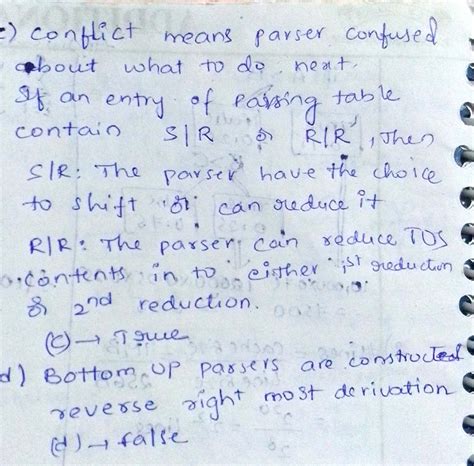 c) conflict means parser confused
about what to do next.
If an entry of parsing table
contain S/R or R/R, then
S/R: The parser have the choice
to shift or can reduce it
R/R: The parser can reduce TOS
contents in to either 1st reduction
or 2nd reduction.
(c) → True
d) Bottom up parsers are constructed
reverse right most derivation
(d) → false